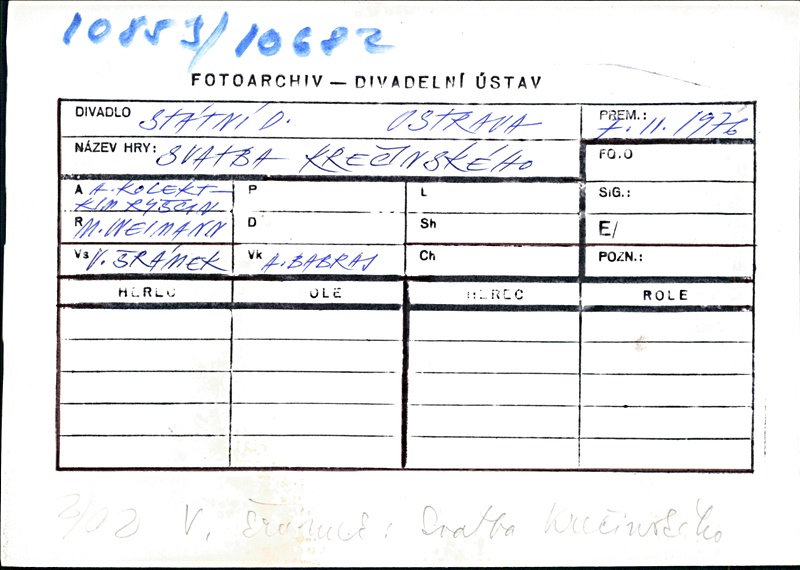 10853/10682
FOTOARCHIV — DIVADELNÍ ÚSTAV
DIVADLO STÁTNÍ D. OSTRAVA PREM.: 7. 11. 1976
NÁZEV HRY: SVATBA KREČINSKÉHO FOTO
A A. KOLEKT- P L SIG.:
KIM RYŠČIN
R M. WEIMANN D Sh E/
Vs V. ŠRÁMEK Vk A. BABRAJ Ch POZN.:
HEREC OLE HEREC ROLE
V. Šrámek: Svatba Krečinského